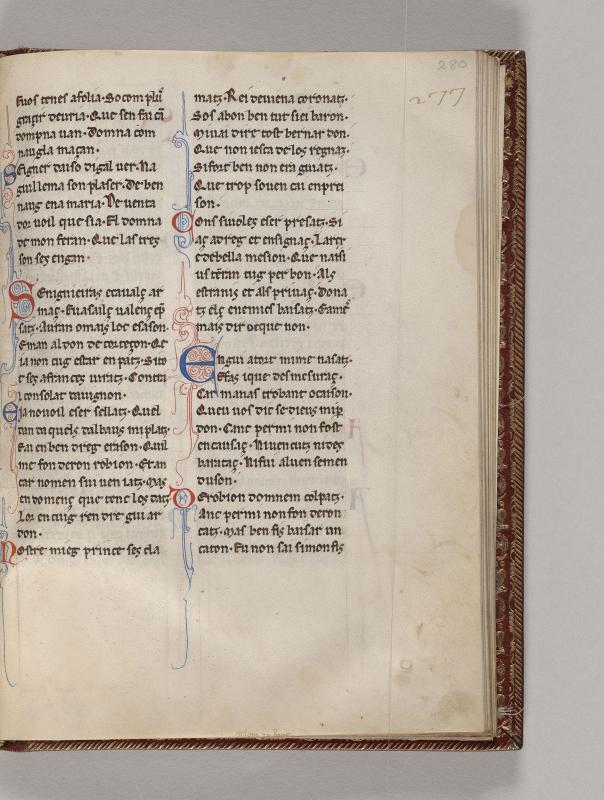 280
277
Euos tenes afolia. So com pluꝫ
grazir deuria. Que sen fai cū
dompna uan. Domna com
naugla maçan.
Seigner duiso digal uer. Na
guillema son plaser. De ben
naug ena maria. De uenta
dor uoil que sia. El domna
de mon ferran. Que las tres
son ses engan.
Senignieiras e caualç ar
maç. E uasalç
satz. Auran omais loc e sason.
E man al don de corteçon. Qe
ia non cug estar en patz. Si to
t ses afrancos iuratz. Contra
l consolat dauignon.
Eia no uoil eser sellatz. Quel
tan ta quels talbaus mi platz.
Fai en ben dreg e rason. Quil
me fon deron robion. Eran
car nomen sui ueniatz. Mas
en domenç que tenc los datz.
Lor en cuig ren dre gui ar
don.
Nostre mieg prince ses cla
matz. Rei de uiena coronatz.
Sos abon ben tut siei baron.
Mi uai dire tost bernar don.
Que non iesca de los regnatz.
Si fort ben non era guiatz.
Que trop souen cui en prei
son.
Cons si uolez eser presatz. Si
aç adreg et ensignaç. Larcs
e de bella mesion. Que naisi
us teran tug per bon. Als
estranis et als priuaç. Dona
tz elç enemics baisatz.
mais dir oc que non.
Engui a tort mi me nasatz.
E fas i que desmesuraç.
Car manas trobant ocaison.
Queu uos dic se dieus mi
don. Canc per mi non fost
encausaç. Ni uencutz ni des
barataç. Ni fui al uen semen
dusou.
De robion domnem colpatz.
Anc per mi non fon deron
catz. Mas ben fis baisar un
caton. Eu non sai si mon fis